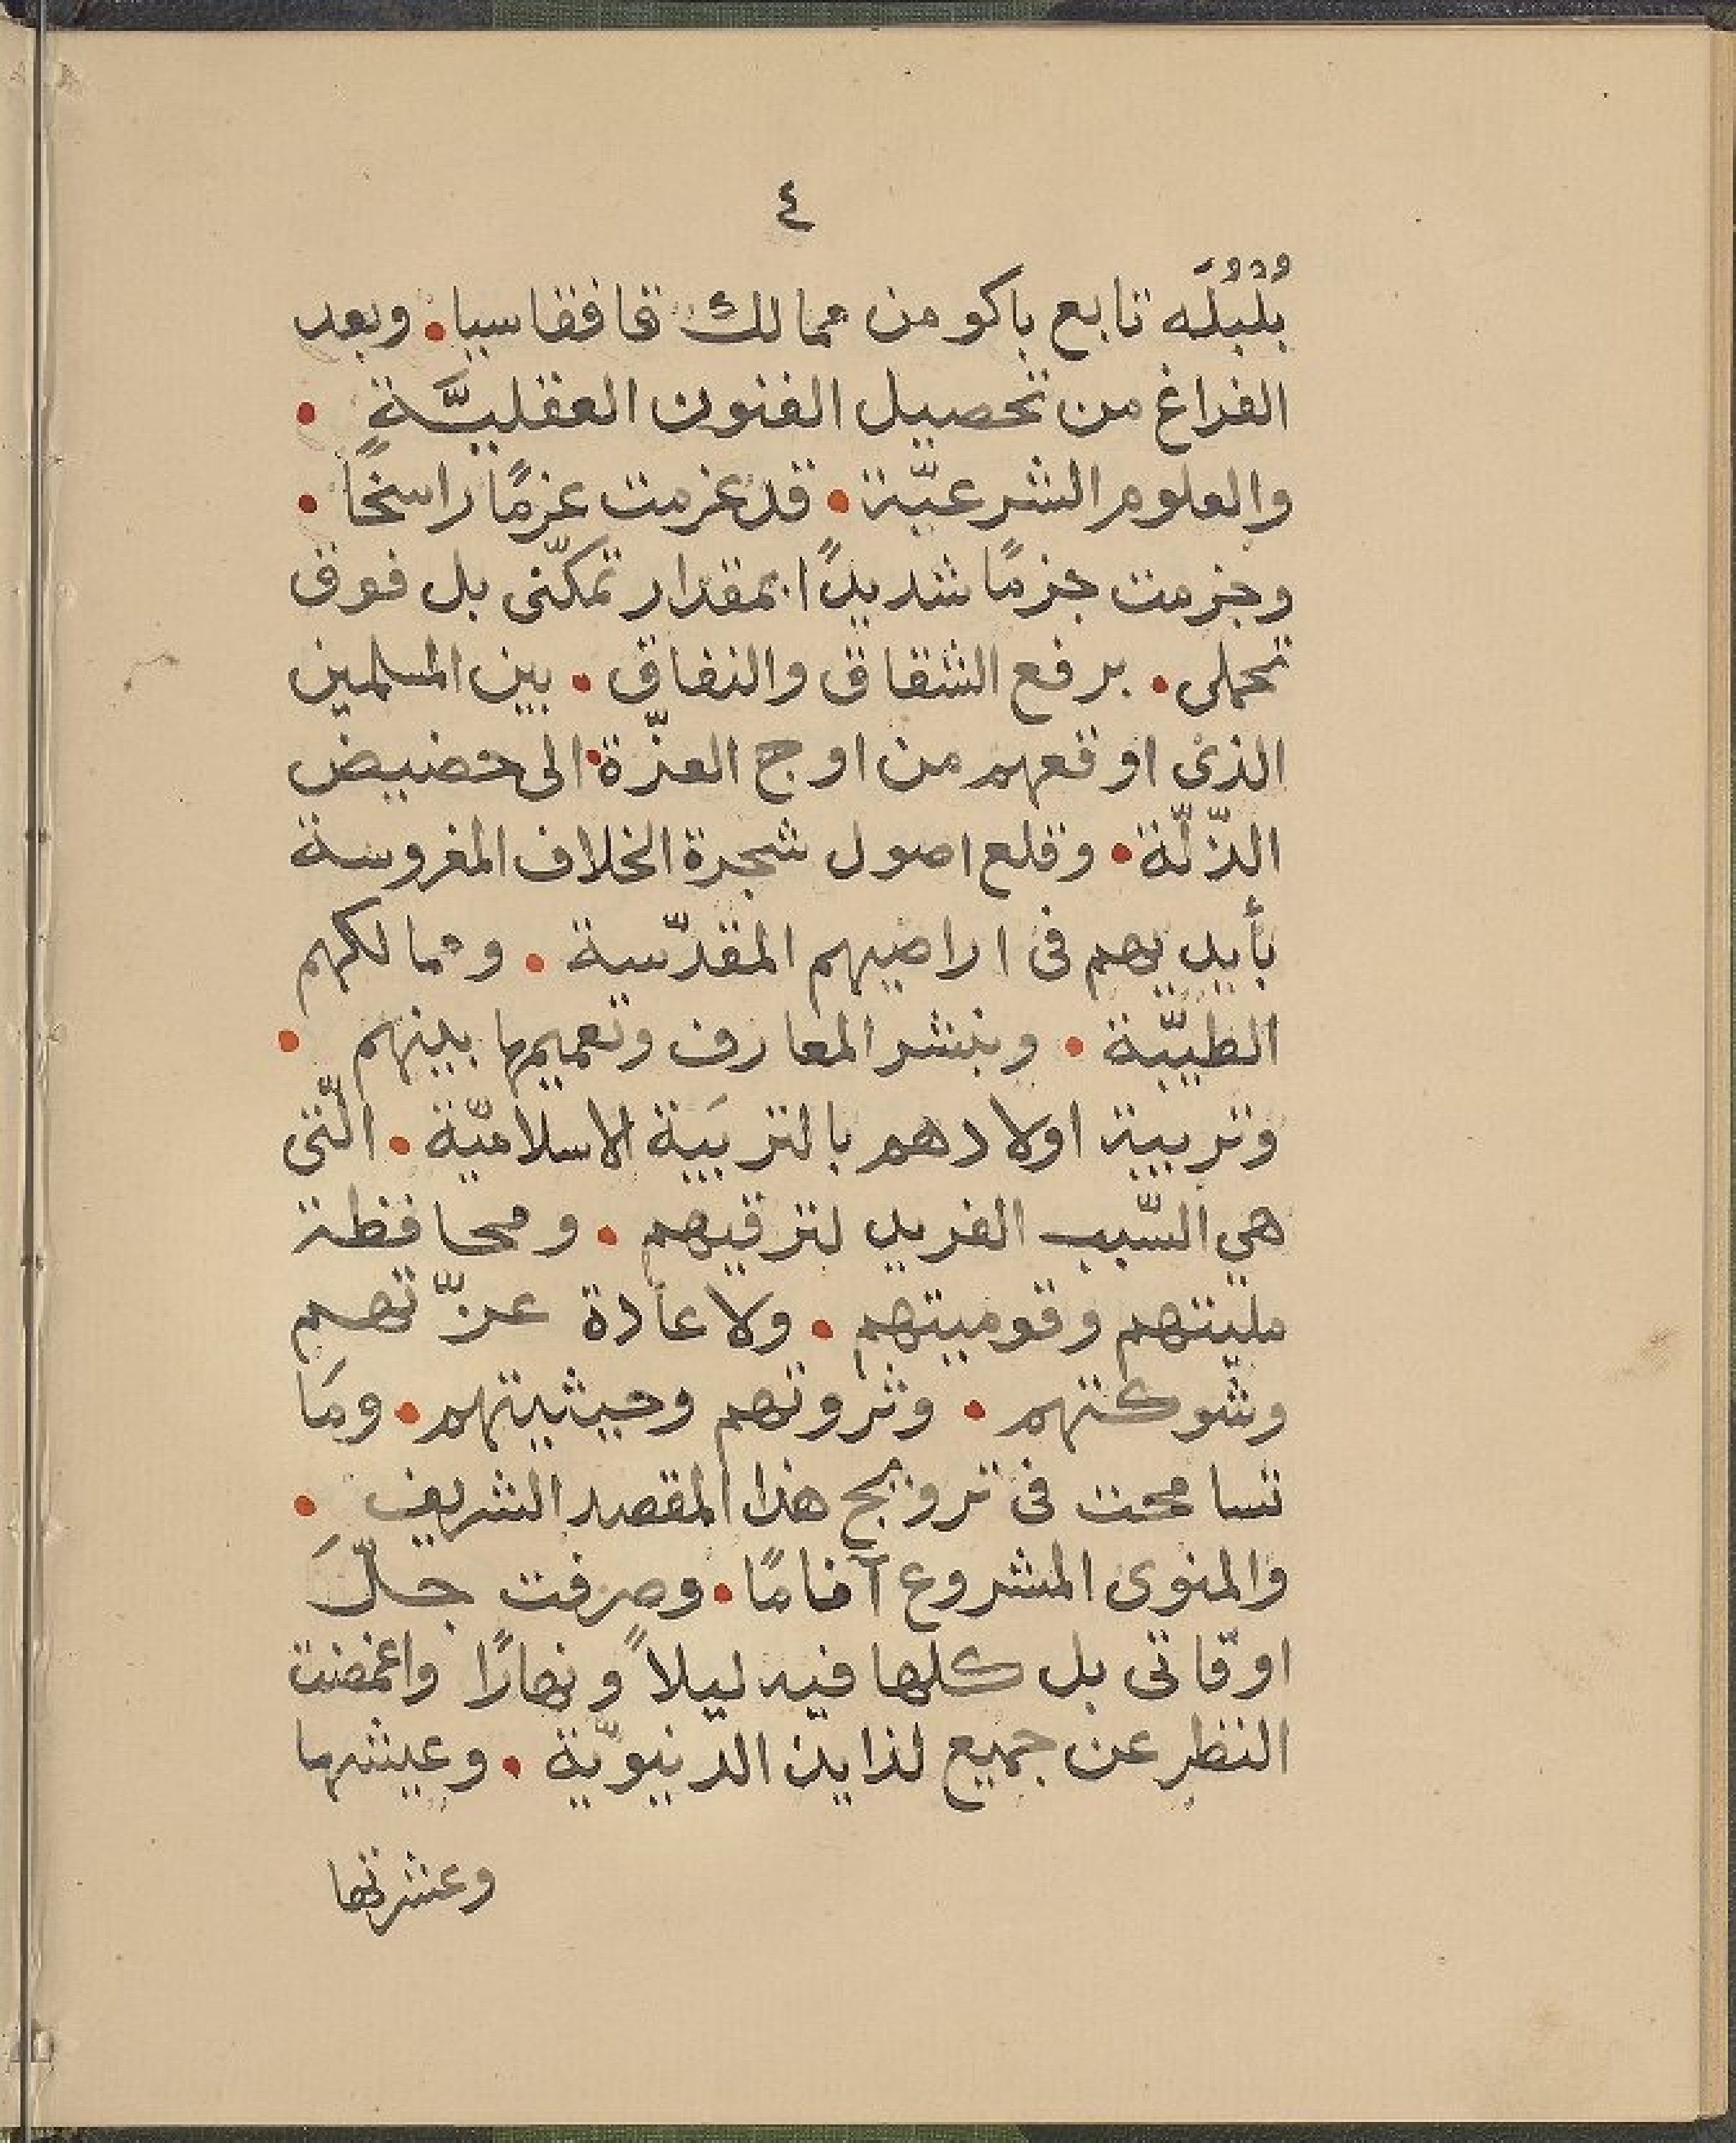 ٤
بُلْبُلَه تابع باكو من ممالك قافقاسيا. وبعد
الفراغ من تحصيل الفنون العقليَّة .
والعلوم الشرعيّة. قد عزمت عزمًا راسخًا .
وجزمت جزمًا شديدًا بمقدار تمكّنى بل فوق
تحملى. برفع الشقاق والنفاق. بين المسلمين
الذى اوقعهم من اوج العزّة. الى حضيض
الذّلّة. وقلع اصول شجرة الخلاف المغروسة
بأيديهم فى اراضيهم المقدّسة . وممالكهم
الطيبّة . وبنشر المعارف وتعميمها بينهم .
وتربية اولادهم بالتربَية الاسلاميّة. الّتى
هي السّبب الفريد لترقيهم . ومحافظة
مليتهم وقوميتهم . ولاعادة عزّتهم
وشوكتهم . وثروتهم وحيثيتهم. ومَا
تسامحت فى ترويج هذا المقصد الشريف .
والمنوى المشروع آنامًا. وصرفت جلَّ
اوقاتى بل كلها فيه ليلاً ونهارًا واغمضت
النظر عن جميع لذايذ الدنيويّة . وعيشها
وعشرتها